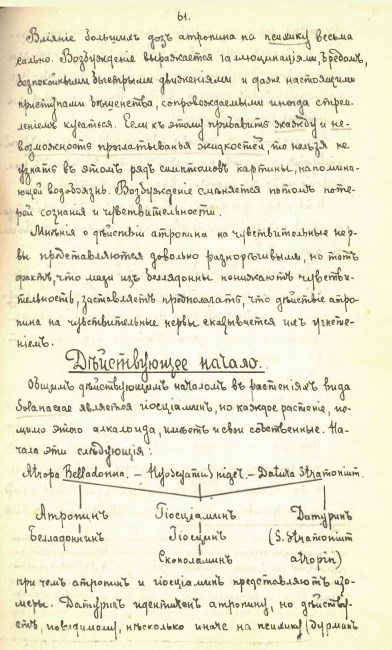 61.
Вліяніе большихъ дозъ атропина на психику весьма
сильно. Возбужденіе выражается галлюцинаціями, бредомъ,
безпокойными быстрыми движеніями и даже настоящими
приступами бѣшенства, сопровождаемыми иногда стрем-
леніемъ кусаться. Если къ этому прибавить жажду и не-
возможность проглатыванья жидкостей, то нельзя не
узнать въ этомъ рядѣ симптомовъ картины, напомина-
ющей водобоязнь. Возбужденіе смѣняется потомъ поте-
рей сознанія и чувствительности.
Мнѣнія о дѣйствіи атропина на чувствительные нер-
вы представляются довольно разнорѣчивыми, но тотъ
фактъ, что мази изъ белладонны понижаютъ чувстви-
тельность, заставляетъ предполагать, что дѣйствіе атро-
пина на чувствительные нервы сказывается ихъ угнете-
ніемъ.
Дѣйствующее начало.
Общимъ дѣйствующимъ началомъ въ растеніяхъ вида
Solanaceae является гіосціаминъ, но каждое растеніе, по-
мимо этого алкалоида, имѣетъ и свои собственные. На-
чала эти слѣдующія:
Atropa Belladonna. – Hyoscyamus niger. – Datura Stramonium.
Атропинъ Гіосціаминъ Датуринъ
Белладонинъ Гіосцинъ (S. Stramonium
Скополаминъ atropin)
при чемъ атропинъ и гіосціаминъ представляютъ изо-
меры. Датуринъ идентиченъ атропину, но дѣйству-
етъ, повидимому, нѣсколько иначе на психику (дурманъ